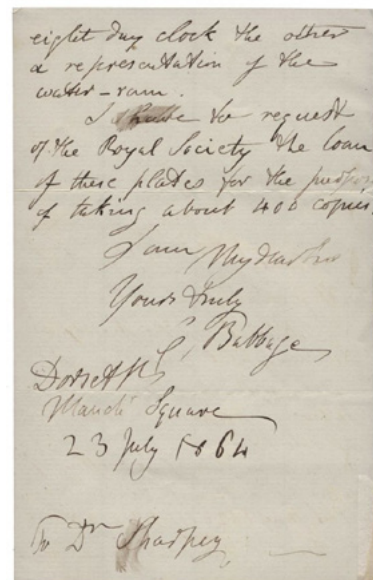 eight day clock the other
a representation of the
water-ram.
I have to request
of the Royal Society the loan
of these plates for the purpose
of taking about 400 copies.
I am My dear Sir
Yours truly
C, Babbage
Dorset St
Manchr Square
23 July 1864
To Dr Sharpey